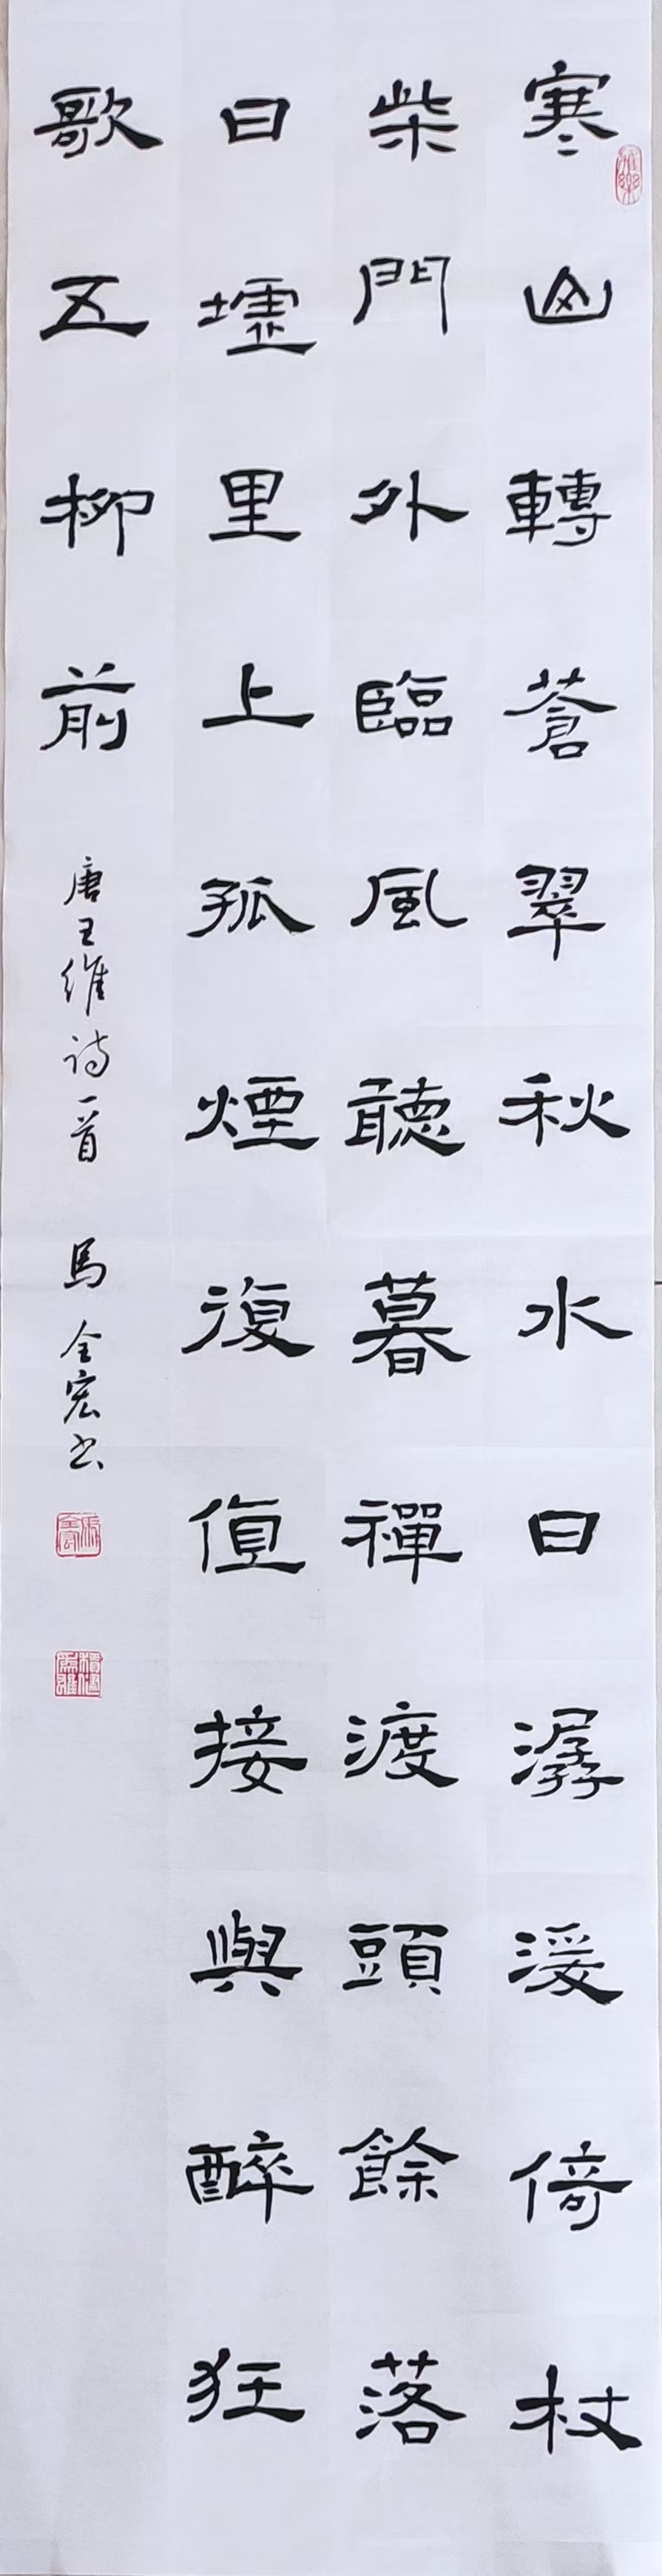 寒山轉蒼翠秋水日潺湲倚杖
柴門外臨風聽暮禪渡頭餘落
日墟里上孤煙復值接與醉狂
歌五柳前
唐王維詩一首 馬全宏书